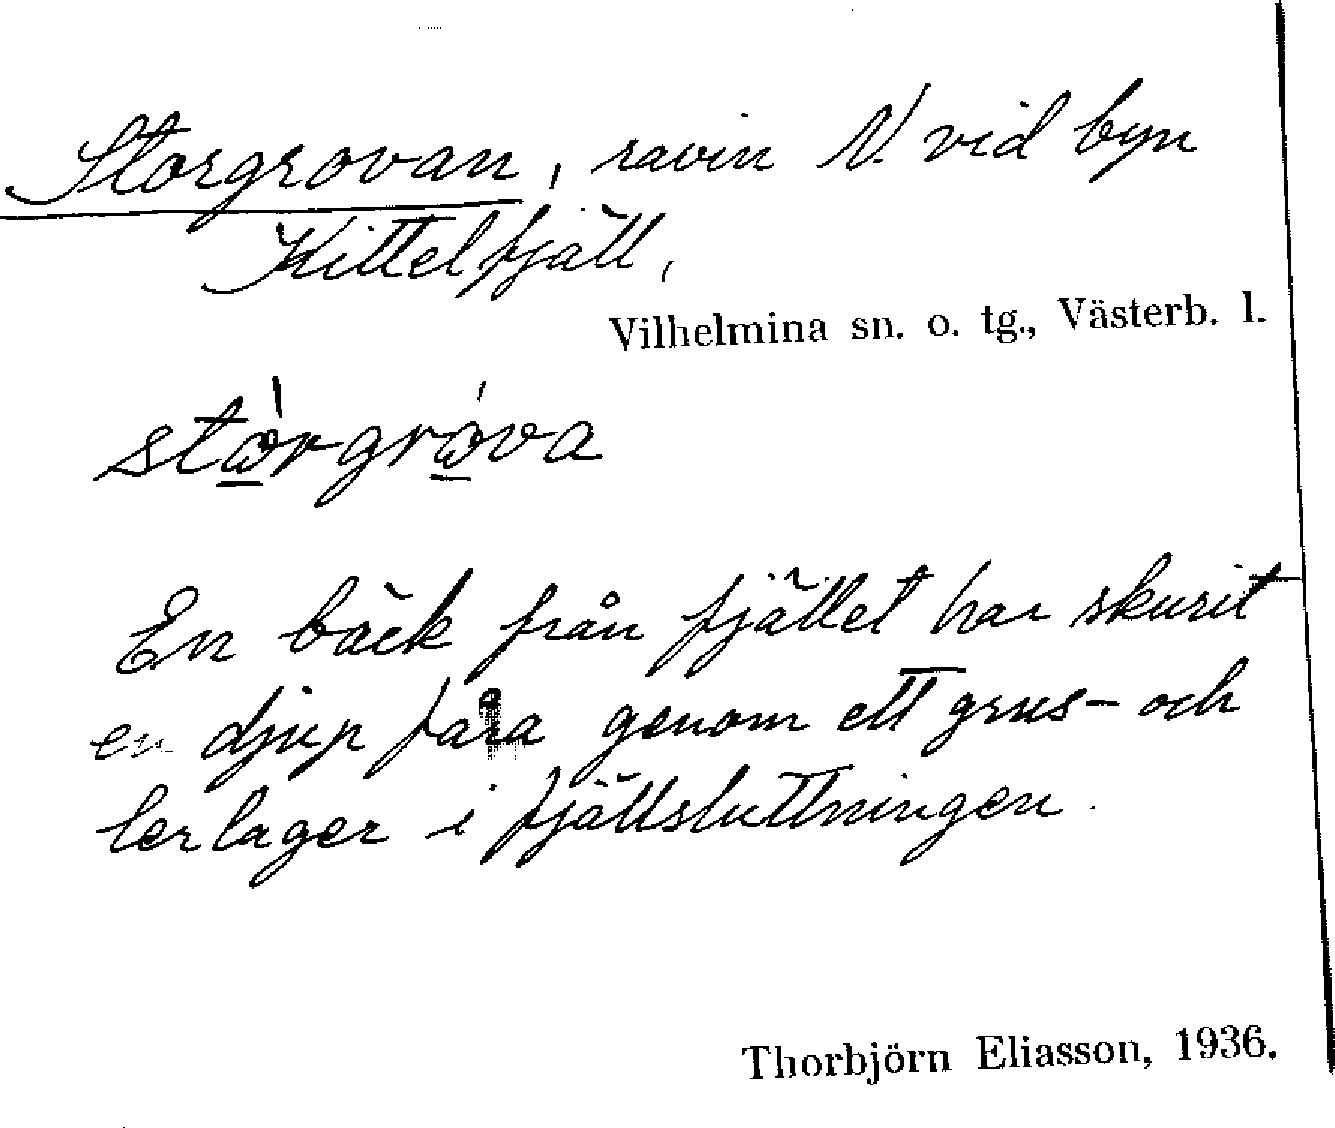 Storgrovan, ravin N. vid byn
Kittelfjäll,
Vilhelmina sn. o. tg., Västerb. l.
En bäck från fjället har skurit
en djup fåra genom ett grus- och
lerlager i fjällsluttningen.
Thorbjörn Eliasson, 1936.